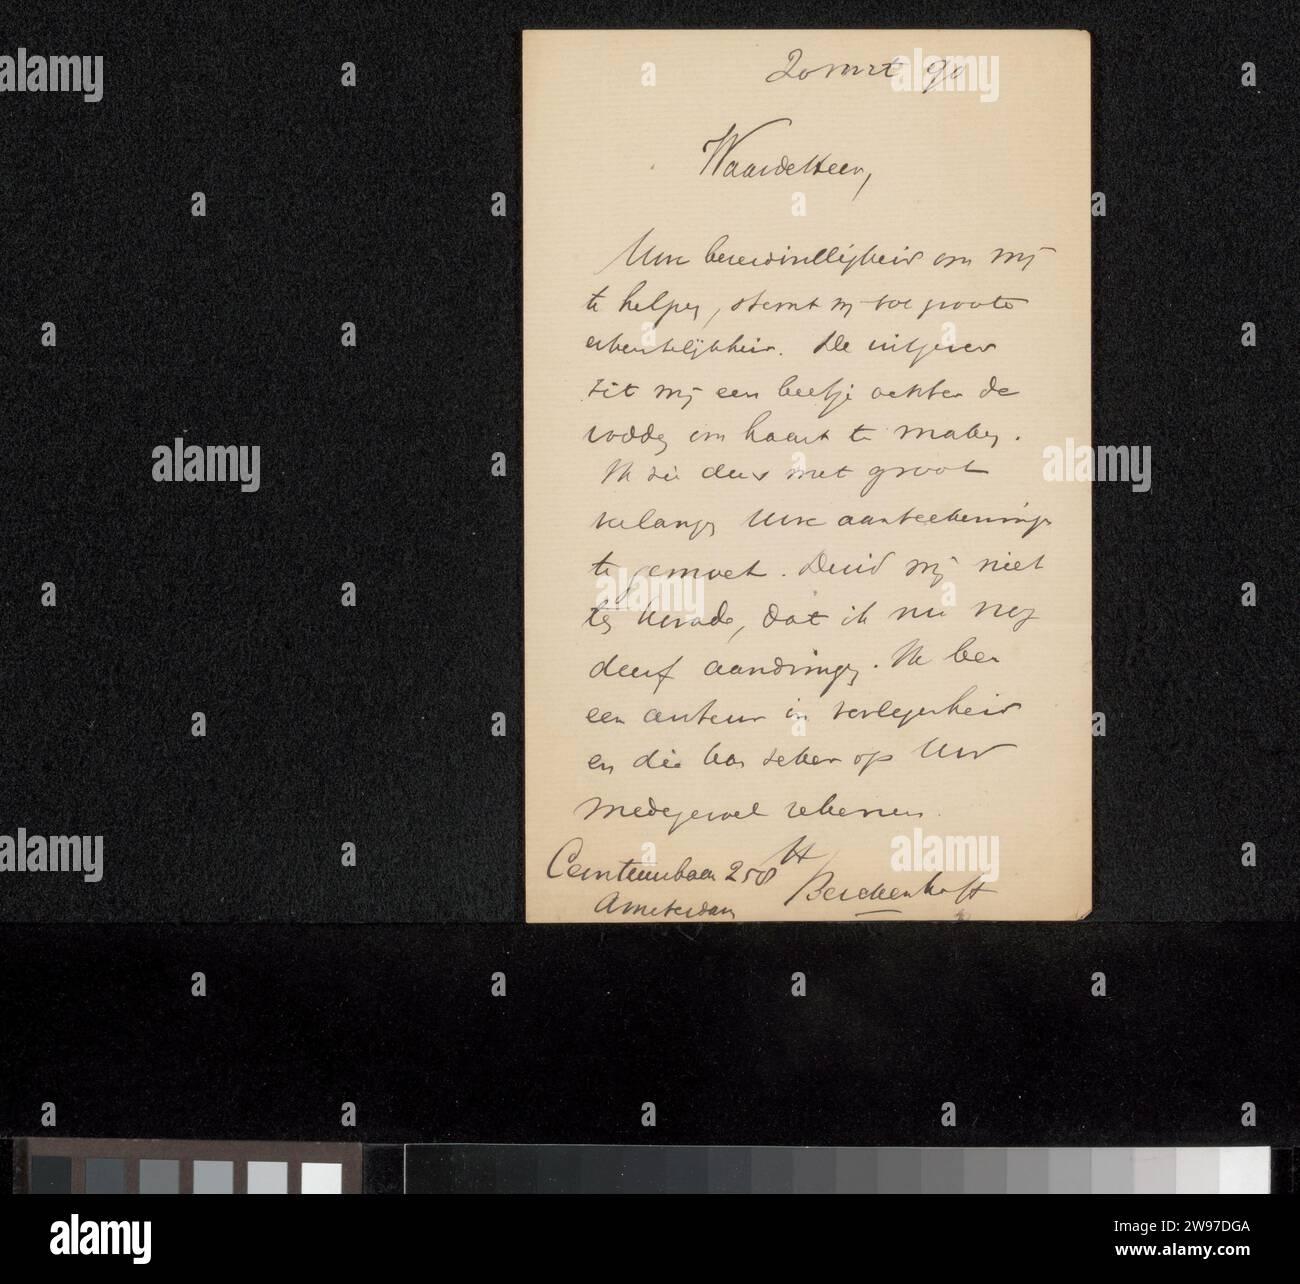 20 mrt 90
Waarde Heer,
Uwe bereidwilligheid om mij
te helpen, stemt mij tot groote
erkentelijkheid. De uitgever
zit mij een beetje achter de
vodden om haast te maken.
Ik zie dus met groot
verlangen Uwe aanteekeningen
te gemoet. Duid mij niet
ten kwade, dat ik nu nog
durf aandringen. Ik ben
een auteur in verlegenheid
en die kan zeker op Uw
medegevoel rekenen.
Ceintuurbaan 258 H
Berckenhoff
Amsterdam
alamy
Image ID: 2W97DGA
www.alamy.com